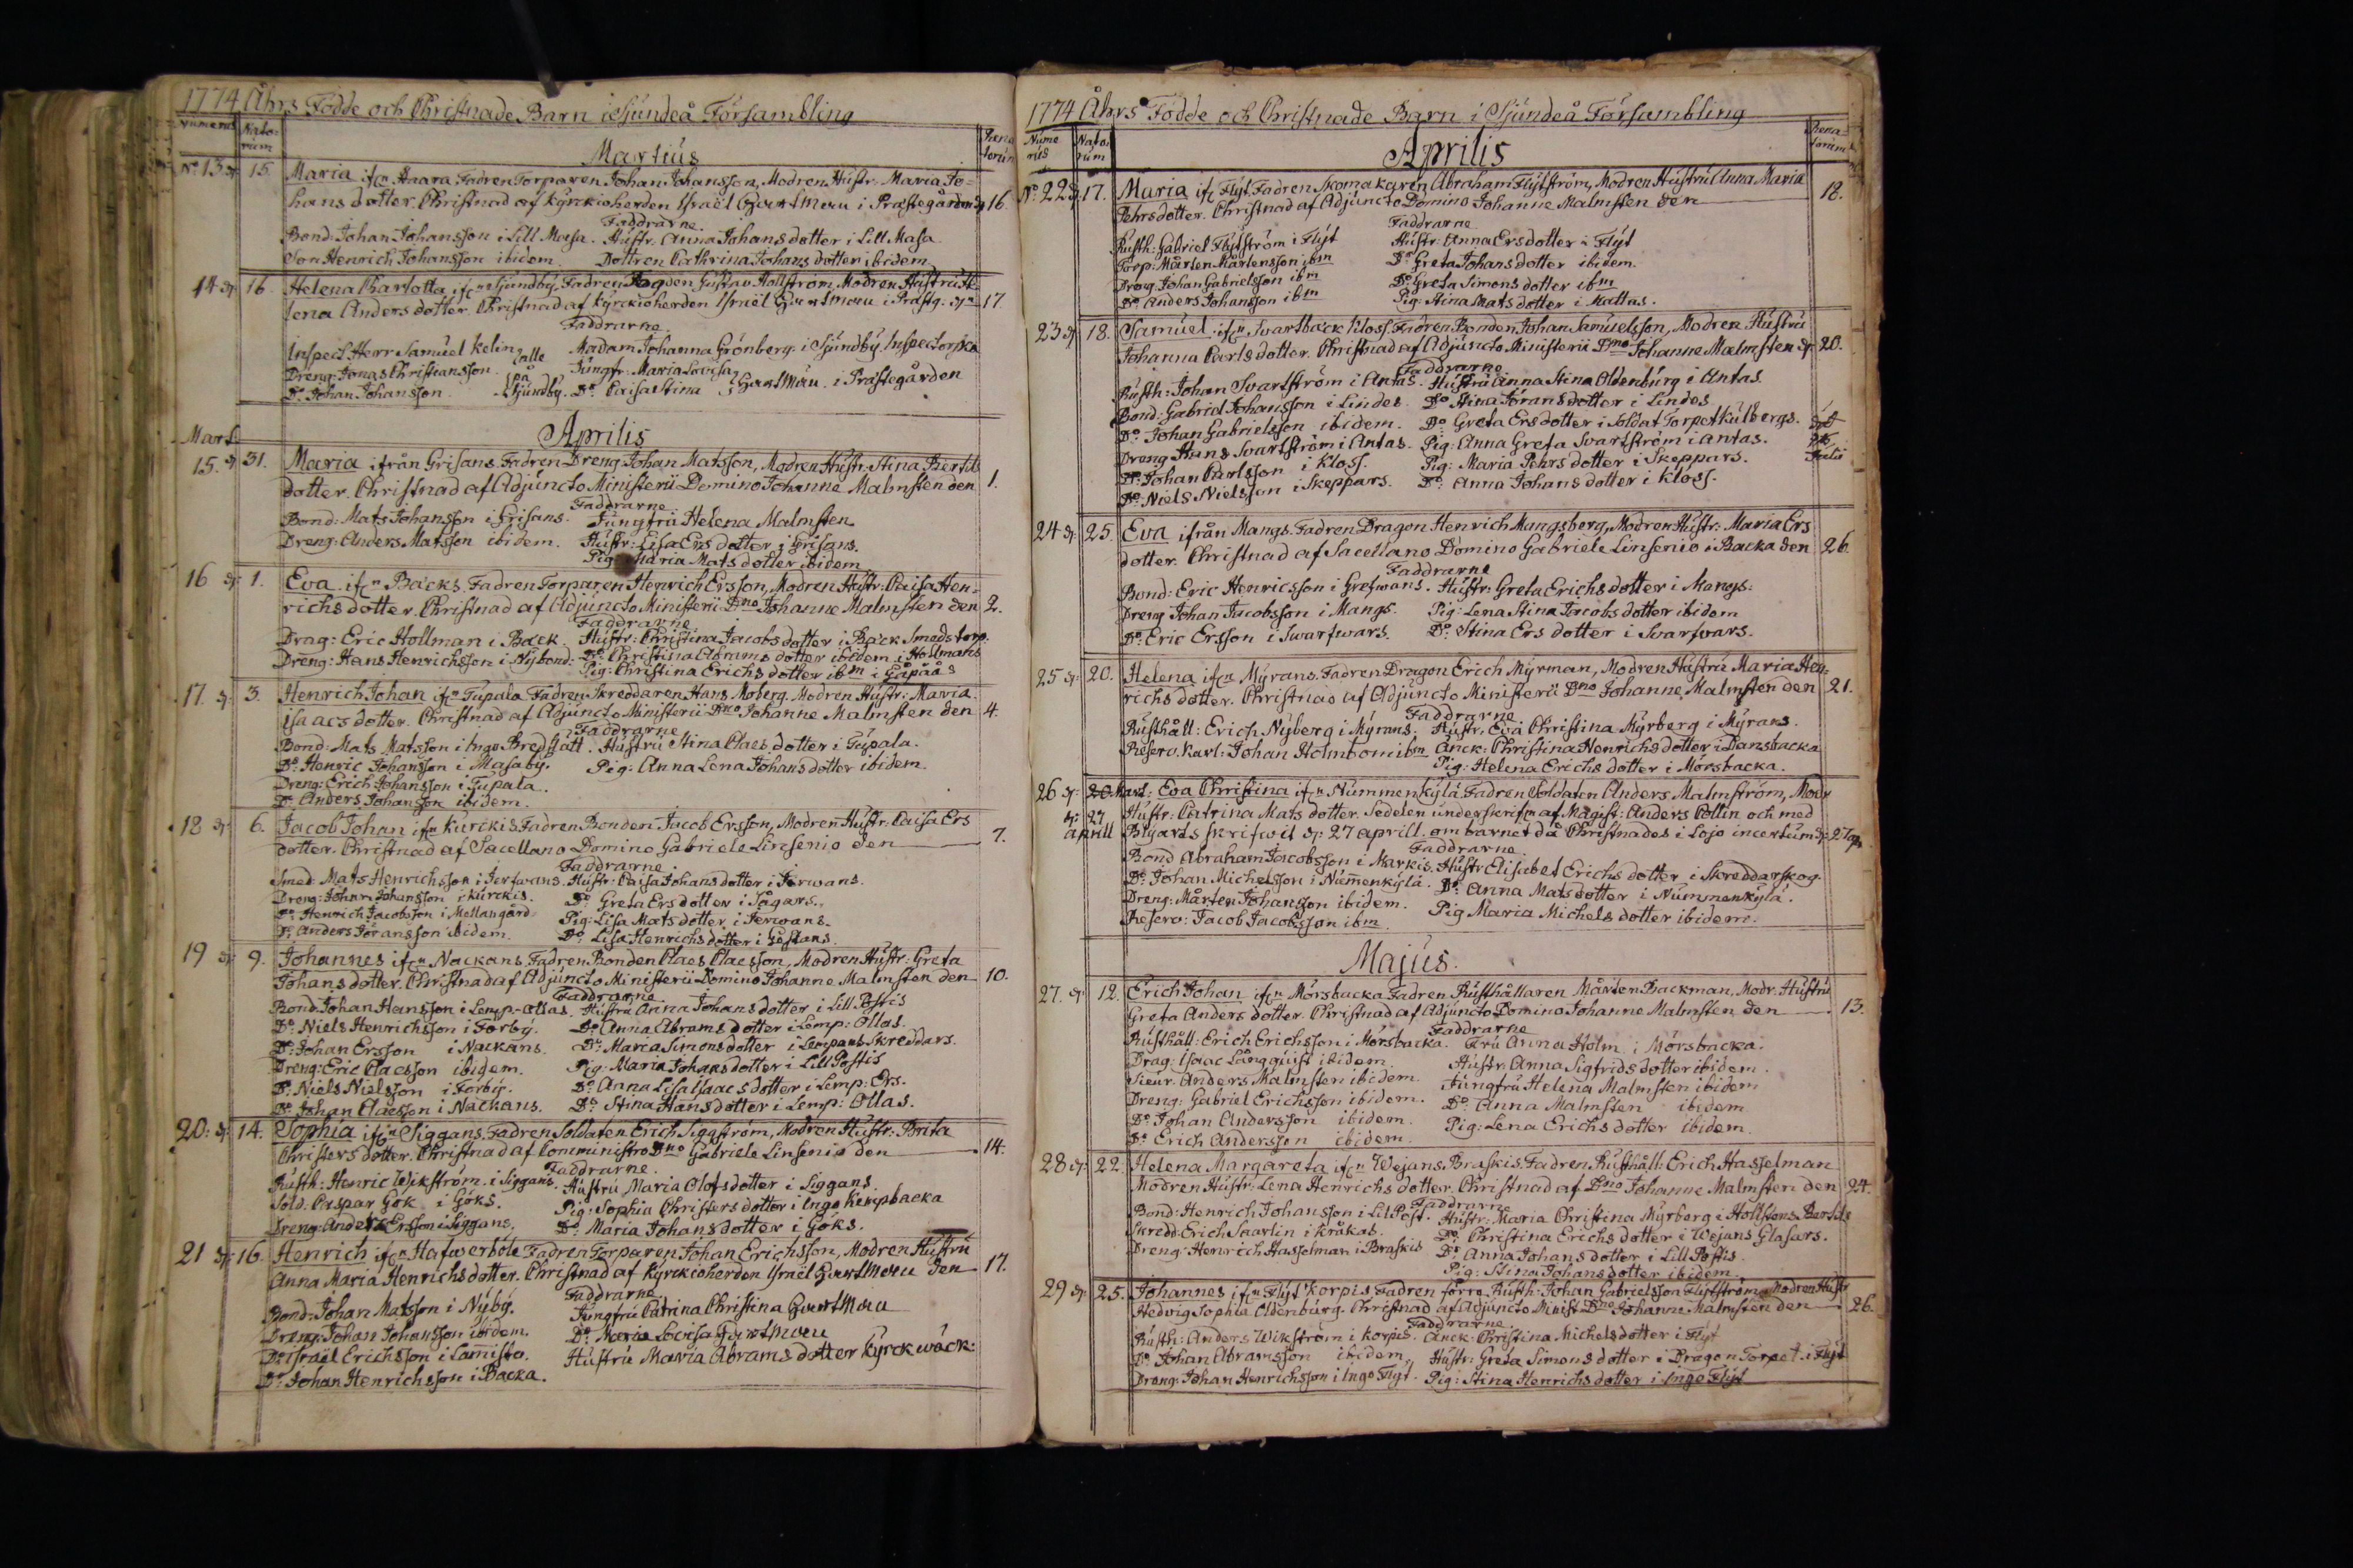 1774 Åhrs Födde och Christnade Barn i Sjundeå Försambling
Numerus Nato-rum Rena-torum
Martius
No 13 15. Maria ifrn Haara Fadren Torparen Johan Johansson, Modren Hustr: Maria Jo-
hans dotter. Christnad af Kyrckioherden Israël i Prästegården 16.
Faddrarne.
Bond: Johan Johansson i Lill Masa. Hustr. Anna Johans dotter i Lill Masa
Son Henrich Johansson ibidem. Dottren Cathrina Johans dotter ibidem
14 16. Helena Charlotta ifrn Sjundby, Fadren Fogden Gustav Hollström, Modren Hustru He-
lena Anders dotter. Christnad af Kyrckioherden Israël i Prästg: 17.
Faddrarne.
Inspect. Herr Samuel Kelin Madam Johanna Grönberg i Sjundby. Inspectorska
Dreng: Jonas Christiansson. alle på Jungfr: Maria Lovisa
Do Johan Johansson. Sjundby. Do Caisa Stina i Prästegården
Mart. Aprilis
15. 31. Maria ifrån Grisans. Fadren Dreng: Johan Matsson, Modren Hustr: Stina Bertils
dotter. Christnad af Adjuncto Ministerii Domino Johanne Malmsten den 1.
Faddrarne
Bond: Mats Johansson i Grisans. Jungfru Helena Malmsten
Dreng: Anders Matsson ibidem. Hustr: Lisa Ers dotter i Grisans.
Pig: Maria Mats dotter ibidem
16 1. Eva ifrn Bäcks. Fadren Torparen Henrich Ersson, Modren Hustr: Caisa Hen-
richs dotter. Christnad af Adjuncto Ministerii Dno Johanne Malmsten den 2.
Faddrarne
Drag: Eric Hollman i Bäck. Hustr: Christina Jacobs dotter i Bäck Smeds torp.
Dreng: Hans Henrichsson i Nybond: Do Christina Abrams dotter ibidem i Hollmans
Pig: Christina Erichs dotter ibm i
17 3. Henrich Johan ifrn Tupala. Fadren Skreddaren Hans Moberg, Modren Hustr: Maria
Isaacs dotter. Christnad af Adjuncto Ministerii Dno Johanne Malmsten den 4.
Faddrarne
Bond: Mats Matsson i Ingo Bredslätt. Hustru Stina Claes dotter i Tupala.
Do Henric Johansson i Masaby. Pig: Anna Lena Johans dotter ibidem.
Dreng: Erich Johansson i Tupala.
Do Anders Johansson ibidem.
18 6. Jacob Johan ifrn Kurckis. Fadren Bonden Jacob Ersson, Modren Hustr: Caisa Ers
dotter. Christnad af Sacellano Domino Gabriele Linsenio den 7.
Faddrarne
Smed. Mats Henrichsson i Jerfwans. Hustr: Caisa Johans dotter i Jerwans.
Dreng: Johan Johansson i Kurckis. Do Greta Ers dotter i Sågars.
Do Henrich Jacobsson i Mellangård Pig: Lisa Mats dotter i Jerwans.
Do Anders Jöransson ibidem. Do Lisa Henrichs dotter i Göstans.
19 9. Johannes ifrn Nackans. Fadren Bonden Claes Claesson, Modren Hustr: Greta
Johans dotter. Christnad af Adjuncto Ministerii Domino Johanne Malmsten den 10.
Faddrarne
Bond: Johan Hansson i Lemp-Ollas. Hustru Anna Johans dotter i Lill Postis
Do Niels Henrichsson i Förby. Do Anna Abrams dotter i Lemp: Ollas.
Do Johan Ersson i Nackans. Do Maria Simons dotter i Lempans Skreddars.
Dreng: Eric Claesson ibidem. Pig: Maria Johans dotter i Lill Postis
Do Niels Nielsson i Förby. Do Anna Lisa Isaacs dotter i Lemp: Ers.
Do Johan Claesson i Nackans. Do Stina Hans dotter i Lemp: Ollas.
20: 14. Sophia ifrn Siggans. Fadren Soldaten Erich Siggström, Modren Hustr: Brita
Christers dotter. Christnad af Comministro Dno Gabriele Linsenio den 14.
Faddrarne.
Rusth: Henric Wikström i Siggans. Hustru Maria Olofs dotter i Siggans.
Sold. Caspar Gök i Göks. Pig: Sophia Christers dotter i Ingo Kempbacka
Dreng: Anders Ersson i Siggans. Do Maria Johans dotter i Göks.
21 16. Henrich ifrn Hafwerböle. Fadren Torparen Johan Erichsson, Modren Hustru
Anna Maria Henrichs dotter. Christnad af Kyrckioherden Israël den 17.
Faddrarne
Bond: Johan Matsson i Nyby. Jungfru Catrina Christina
Dreng: Johan Johansson ibidem. Do Maria Lovisa
Do Israël Erichsson i Lamista. Hustru Maria Abrams dotter Kyrckwäck:
Do Johan Henrichsson i Backa.
1774 Åhrs Födde och Christnade Barn i Sjundeå Försambling
Numerus Nato-rum Rena-torum
Aprilis
No 22 17. Maria ifrn Flyt. Fadren Skomakaren Abraham Flytström, Modren Hustru Anna Maria
Pehrs dotter. Christnad af Adjuncto Domino Johanne Malmsten den 18.
Faddrarne
Rusth: Gabriel Flytström i Flyt Hustr: Anna Ersdotter i Flyt
Torp: Mårten Mårtensson ibm Do Greta Johans dotter ibidem.
Dreng: Johan Gabrielsson ibm Do Greta Simons dotter ibm
Do Anders Johansson ibm Pig: Stina Mats dotter i Mattas.
23 18. Samuel ifrn Svartbäck Kloss. Fadren Bonden Johan Samuelsson, Modren Hustru
Johanna Carls dotter. Christnad af Adjuncto Ministerii Dno Johanne Malmsten 20.
Faddrarne
Rusth: Johan Svartström i Antas. Hustru Anna Stina Oldenburg i Antas.
Bond: Gabriel Johansson i Lindes. Do Stina Jörans dotter i Lindes
Do Johan Gabrielsson ibidem. Do Greta Ers dotter i Soldat Torpet Kulbergs.
Dreng Hans Svartström i Antas. Pig: Anna Greta Svartström i Antas.
Do Johan Carlsson i Kloss. Pig: Maria Pehrs dotter i Skeppars.
Do Niels Nielsson i Skeppars. Do Anna Johans dotter i Kloss.
24 25. Eva ifrån Mangs. Fadren Dragon Henrich Mangsberg, Modren Hustr: Maria Ers
dotter. Christnad af Sacellano Domino Gabriele Linsenio i Backa den 26.
Faddrarne
Bond: Eric Henricsson i Grefwans. Hustr: Greta Erichs dotter i Mangs:
Dreng Johan Jacobsson i Mangs. Pig: Lena Stina Jacobs dotter ibidem
Do Eric Ersson i Swartwars. Do Stina Ers dotter i Svartwars.
25 20. Helena ifrn Myrans. Fadren Dragon Erich Myrman, Modren Hustru Maria Hen-
richs dotter. Christnad af Adjuncto Ministerii Dno Johanne Malmsten den 21.
Faddrarne
Rusthåll: Erich Nyberg i Myrans. Hustr. Eva Christina Myrberg i Myrans.
Reserv. Karl: Johan Holmbom ibm Änck: Christina Henrichs dotter i Dansbacka
Pig: Helena Erichs dotter i Mörsbacka.
26 20 Mart: Eva Christina ifrn Nummenkylä. Fadren Soldaten Anders Malmström, Modr
27 Hustr: Catrina Mats dotter. Sedelen underskrifwn af Magist: Anders Collin och med
Aprill Blyarts skrifwit 27 aprill. om barnet då Christnades i Lojo incertum 27 ap
Faddrarne
Bond Abraham Jacobsson i Markis. Hustr Elisabet Erichs dotter i Skreddarskog.
Do Johan Michelsson i Nummenkylä. Do Anna Mats dotter i Nummenkylä.
Dreng: Mårten Johansson ibidem. Pig Maria Michels dotter ibidem.
Reserv: Jacob Jacobsson ibm.
Majus.
27. 12. Erich Johan ifrn Mörsbacka. Fadren Rusthållaren Mårten Backman, Modr. Hustru
Greta Anders dotter. Christnad af Adjuncto Domino Johanne Malmsten den 13.
Faddrarne
Rusthåll: Erich Erichsson i Mörsbacka. Fru Anna Holm i Mörsbacka.
Drag: Isaac Långquist ibidem Hustr. Anna Sigfrids dotter ibidem.
Sieur. Anders Malmsten ibidem. Jungfru Helena Malmsten ibidem
Dreng: Gabriel Erichsson ibidem. Do Anna Malmsten ibidem
Do Johan Andersson ibidem. Pig: Lena Erichs dotter ibidem.
Do Erich Andersson ibidem.
28 22. Helena Margareta ifrn Wejans Braskis. Fadren Rusthåll: Erich Hasselman
Modren Hustr: Lena Henrichs dotter. Christnad af Dno Johanne Malmsten den 24.
Faddrarne
Bond: Henrich Johansson i Lil Post. Hustr: Maria Christina Myrberg i Hollstens Bertils
Skredd: Erich Saarlin i Kråkas. Do Christina Erichs dotter i Wejans Glasars.
Dreng: Henrich Hasselman i Braskis Do Anna Johans dotter i Lill Postis.
Pig: Stina Johans dotter ibidem.
29 25. Johannes ifrn Flyt Korpis. Fadren förre Rusth: Johan Gabrielsson Flytström, Modren Hustr
Hedvig Sophia Oldenburg. Christnad af Adjuncto Minist Dno Johanne Malmsten den 26.
Faddrarne.
Rusth: Anders Wikström i Korpis. Änck: Christina Michels dotter i Flyt
Do Johan Abramsson ibidem. Hustr: Greta Simons dotter i Dragon Torpet i Flyt
Dreng: Johan Henrichsson i Ingo Flyt. Pig: Stina Henrichs dotter i Ingo Flyt